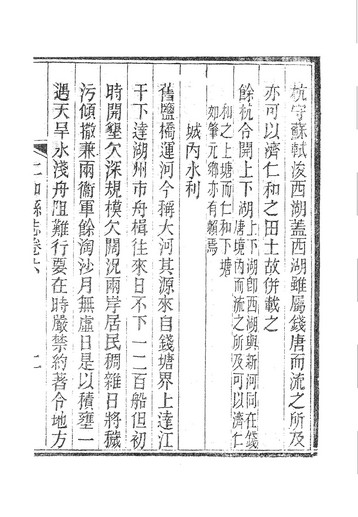 杭守蘇軾浚西湖蓋西湖雖屬錢唐而流之所及
亦可以濟仁和之田土故併載之
餘杭令開上下湖
上下湖卽西湖與新河同在錢
唐境內而流之所及可以濟仁
和之上塘而仁和下塘
如肇元鄉亦有賴焉
城內水利
舊鹽橋運河今稱大河其源來自錢塘界上達江
干下達湖州市舟楫往來日不下一二百船但初
時開墾欠深規模欠闊況兩岸居民稠雜日將穢
污傾撒兼兩衞軍餘淘沙月無虛日是以積壅一
遇天旱水淺舟阻難行要在時嚴禁約著令地方
仁和縣志卷六
二